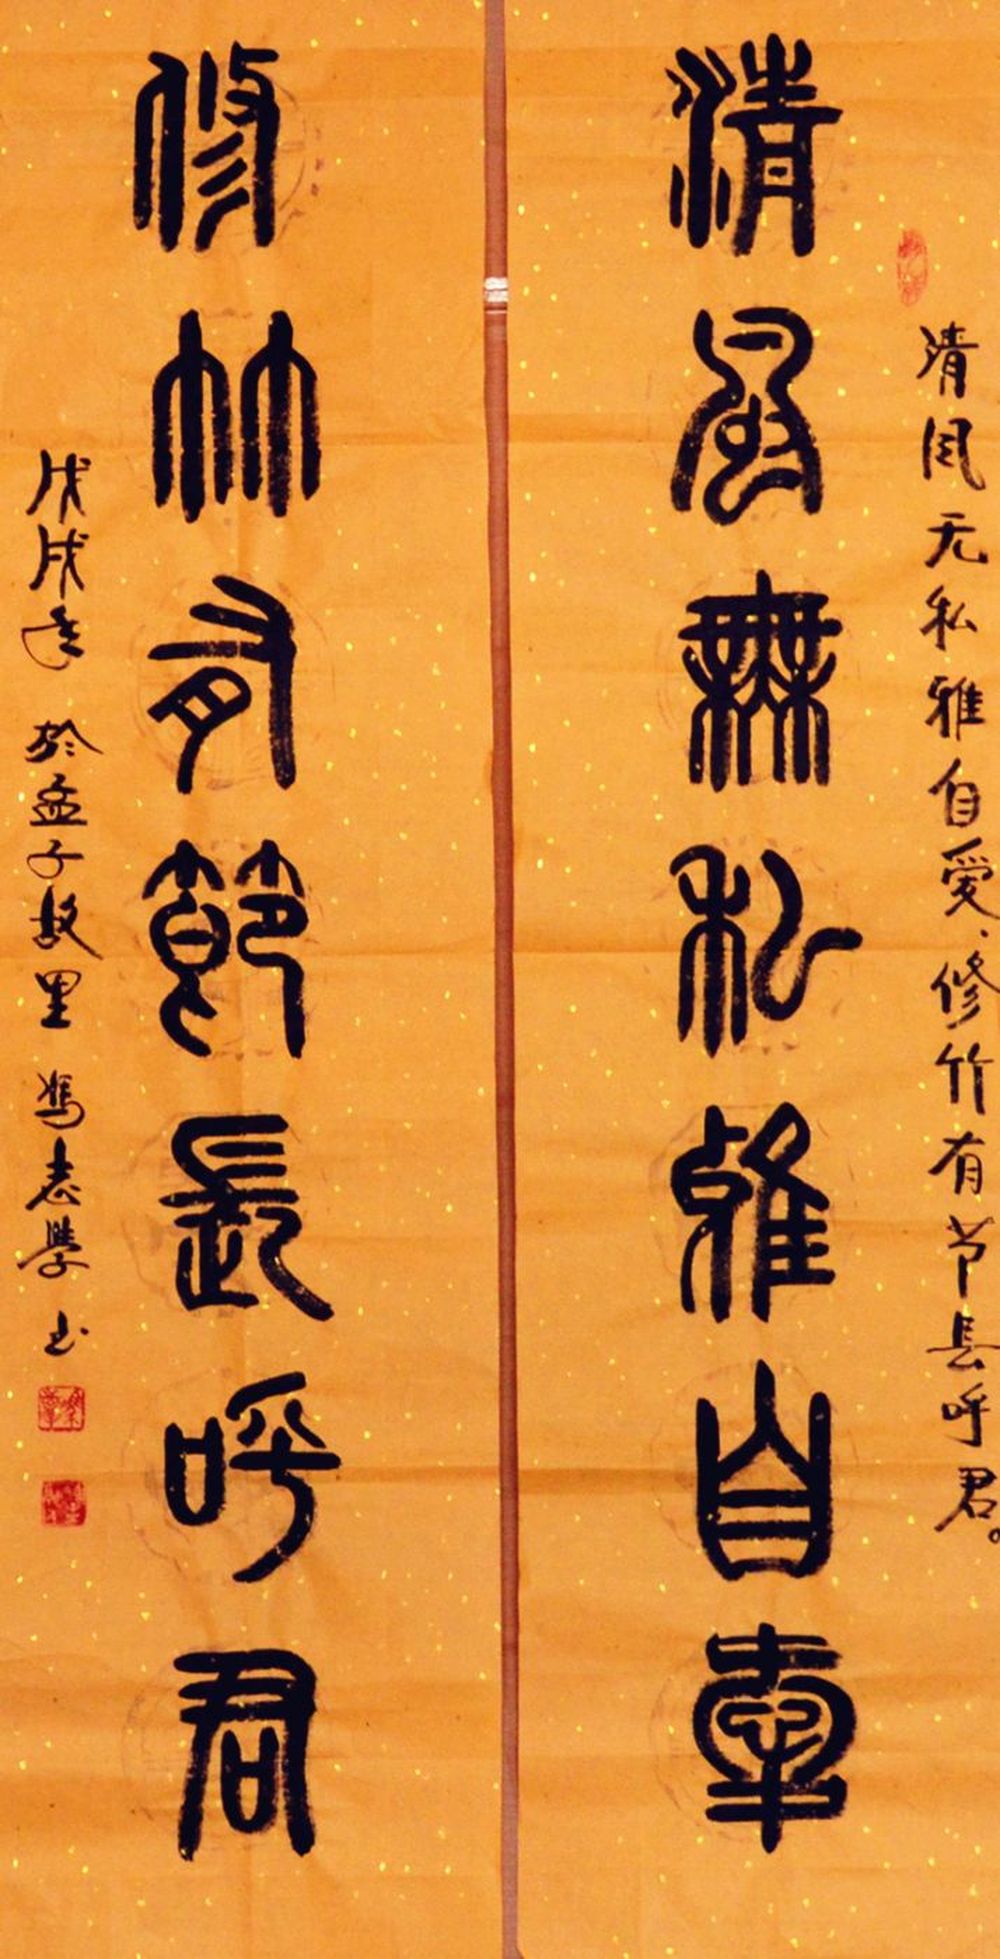 清风无私雅自爱、修竹有节長呼君。
清風無私雅自愛
修竹有節長呼君
戊戌年 於孟子故里 馮志學书